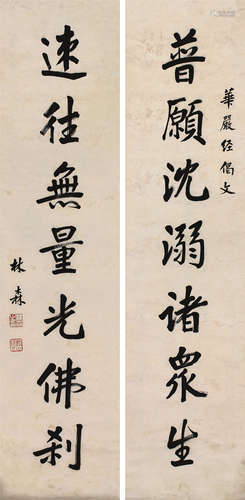 華嚴经偈文
普願沈溺诸眾生
速往無量光佛刹
林森